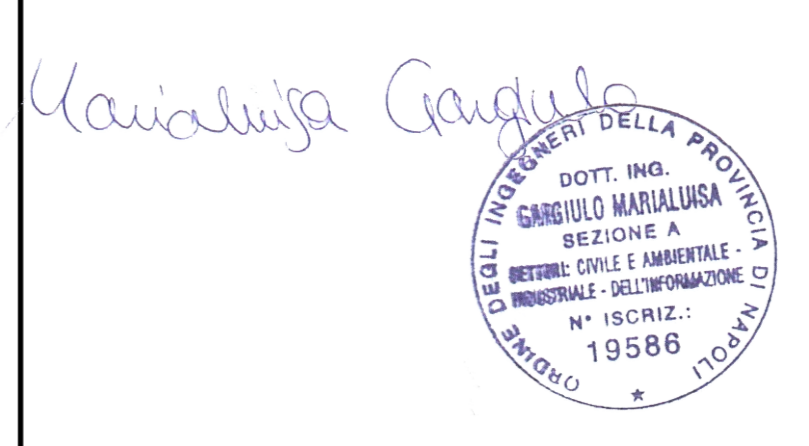 Marialuisa Gargiulo
ORDINE DEGLI INGEGNERI DELLA PROVINCIA DI NAPOLI
DOTT. ING.
GARGIULO MARIALUISA
SEZIONE A
SETTORI: CIVILE E AMBIENTALE -
INDUSTRIALE - DELL'INFORMAZIONE
N° ISCRIZ.:
19586